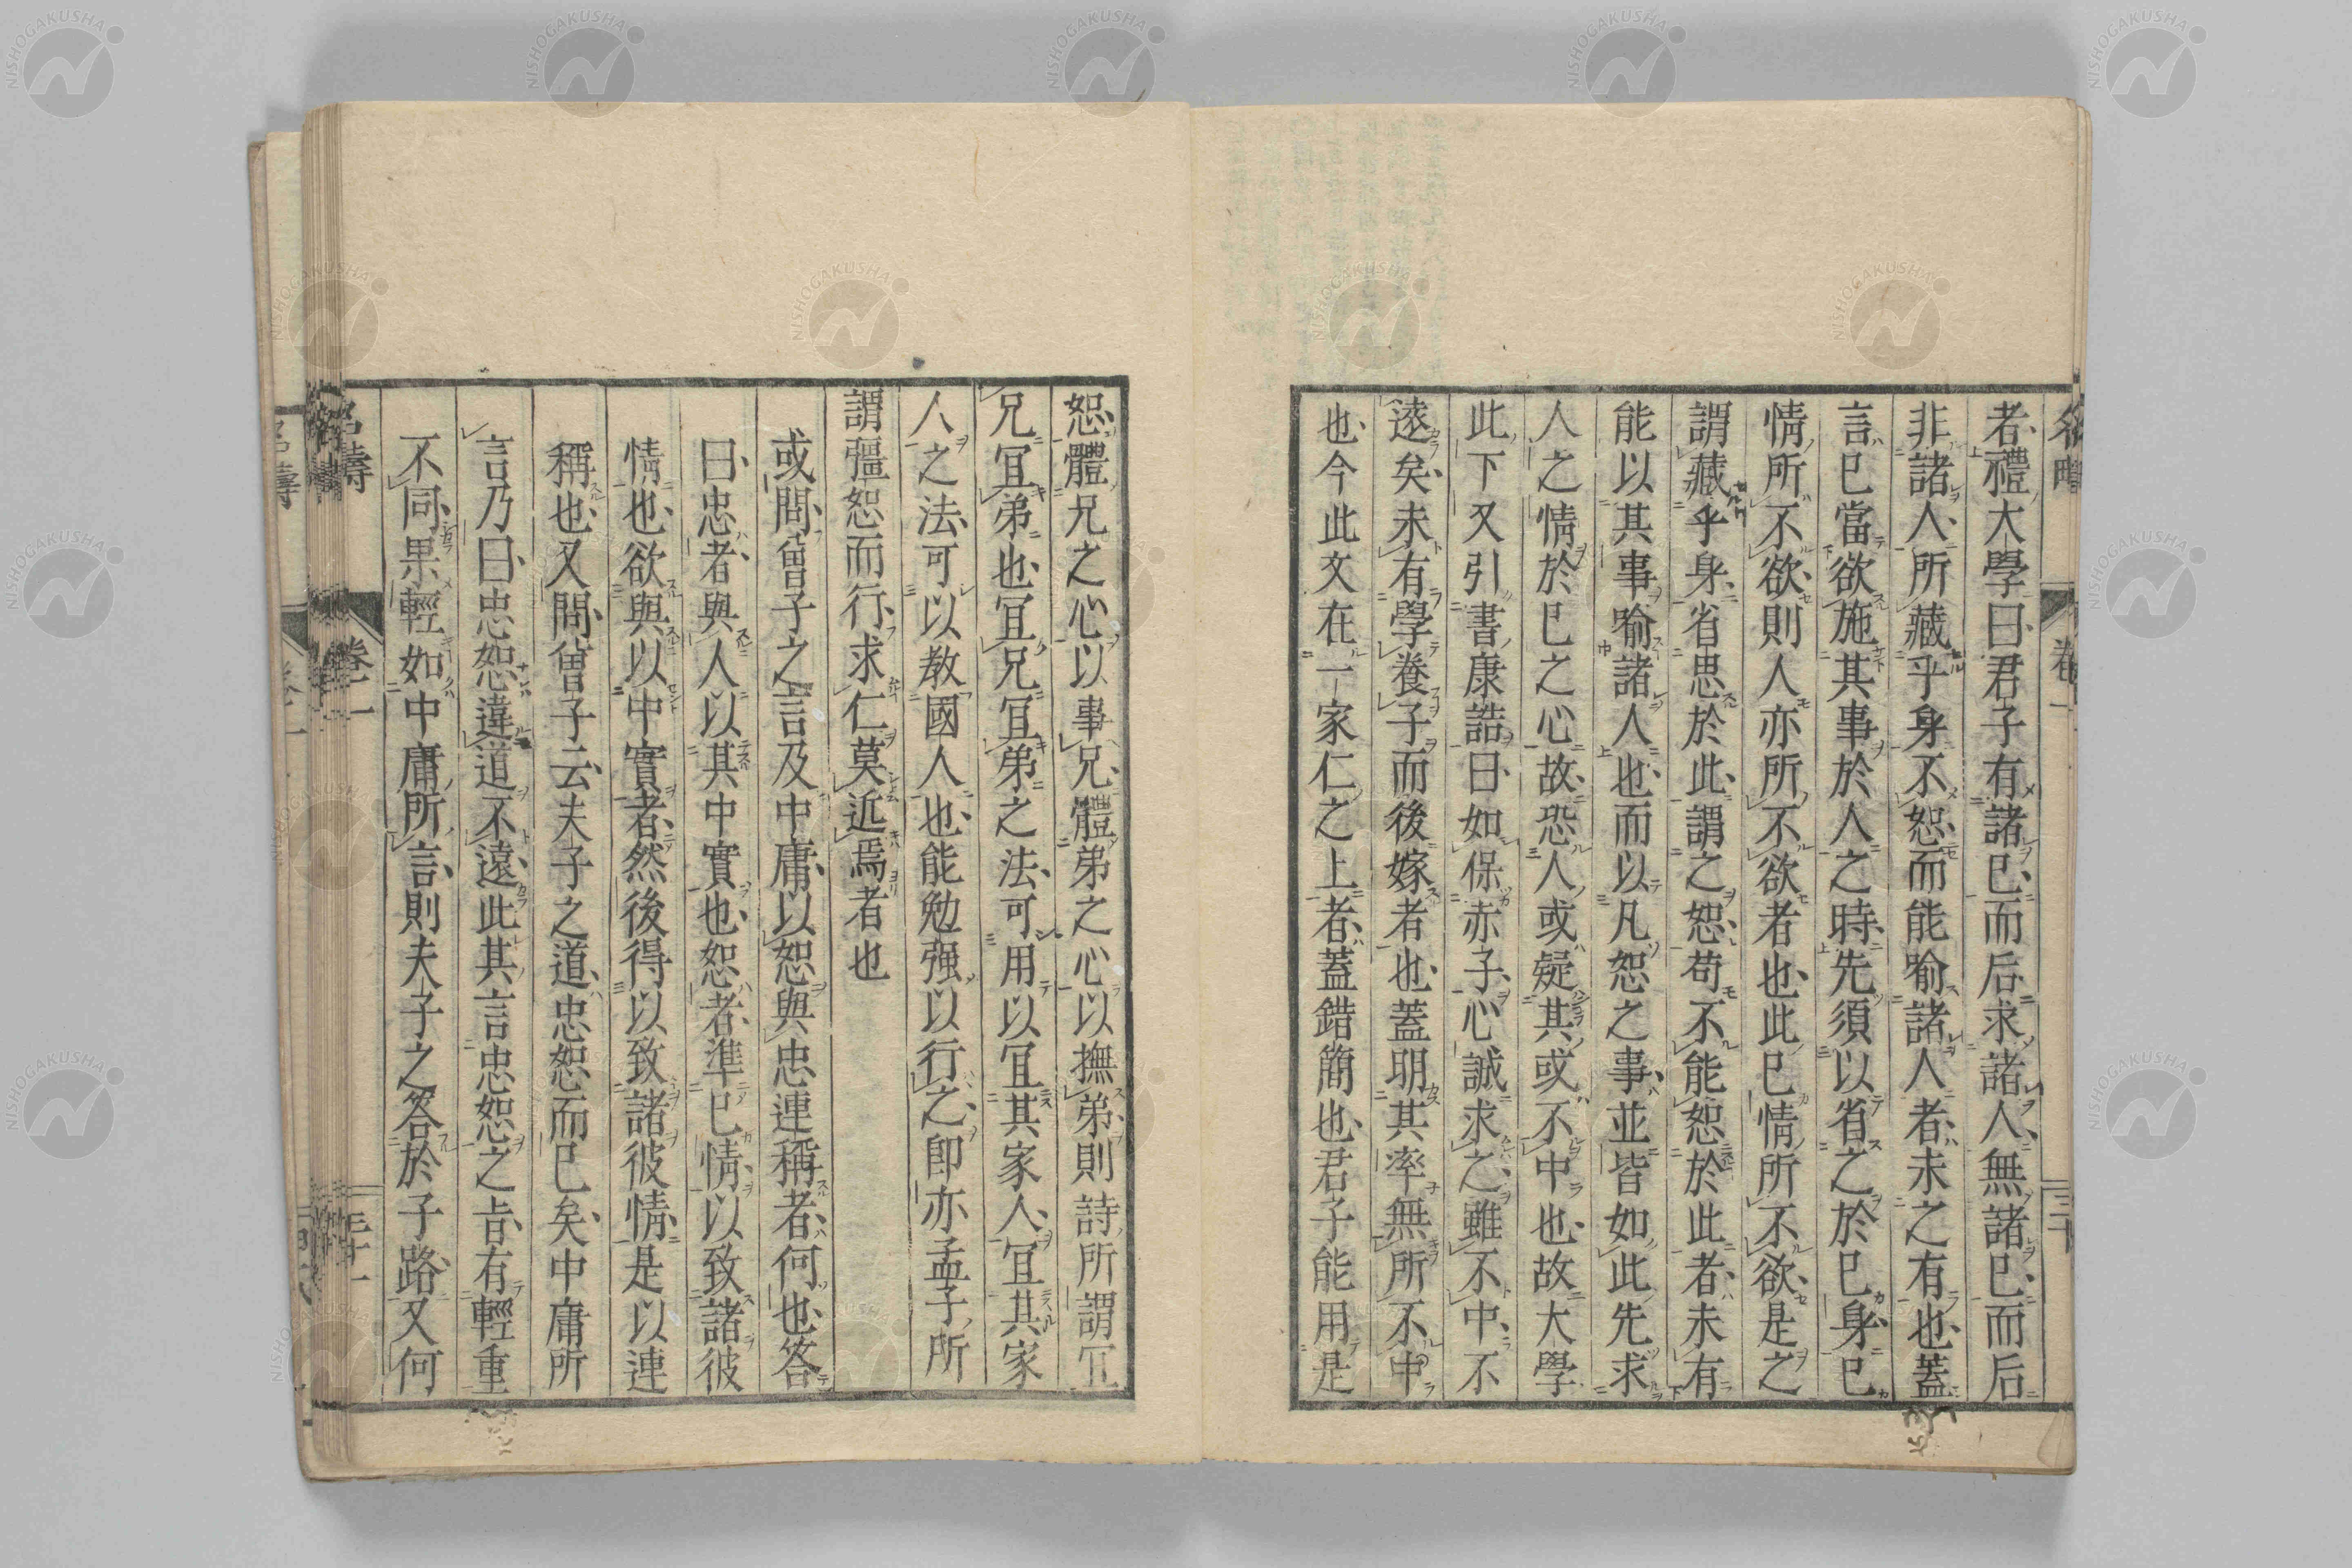 者、禮大學曰、君子有諸已、而后求諸人、無諸已、而后
非諸人、所藏乎身不恕、而能喻諸人者、未之有也、蓋
言已當欲施其事於人之時、先須以省之於已身、已
情所不欲、則人亦所不欲者也、此已情所不欲、是之
謂藏乎身、省思於此、謂之恕、苟不能恕於此者、未有
能以其事喻諸人也、而以凡恕之事、並皆如此先求
人之情於已之心、故恐人或疑其或不中也、故大學
此下又引書康誥曰、如保赤子、心誠求之、雖不中、不
遠矣、未有學養子而後嫁者也、蓋明其率無所不中
也、今此文在一家仁之上者、蓋錯簡也、君子能用是
恕、體兄之心、以事兄、體弟之心、以撫弟、則詩所謂宜
兄宜弟也、宜兄宜弟之法、可用以宜其家人、宜其家
人之法、可以教國人也、能勉强以行之、即亦孟子所
謂彊恕而行、求仁莫近焉者也
或問、曾子之言及中庸、以恕與忠連稱者、何也、答
曰、忠者、與人以其中實也、恕者、準已情、以致諸彼
情也、欲與以中實者、然後得以致諸彼情、是以連
稱也、又問、曾子云、夫子之道、忠恕而已矣、中庸所
言乃曰、忠恕違道不遠、此其言忠恕之旨、有輕重
不同、果輕如中庸所言、則夫子之答於子路、又何
卷一
三十
卷一
三十一
NISHOGAKUSHA